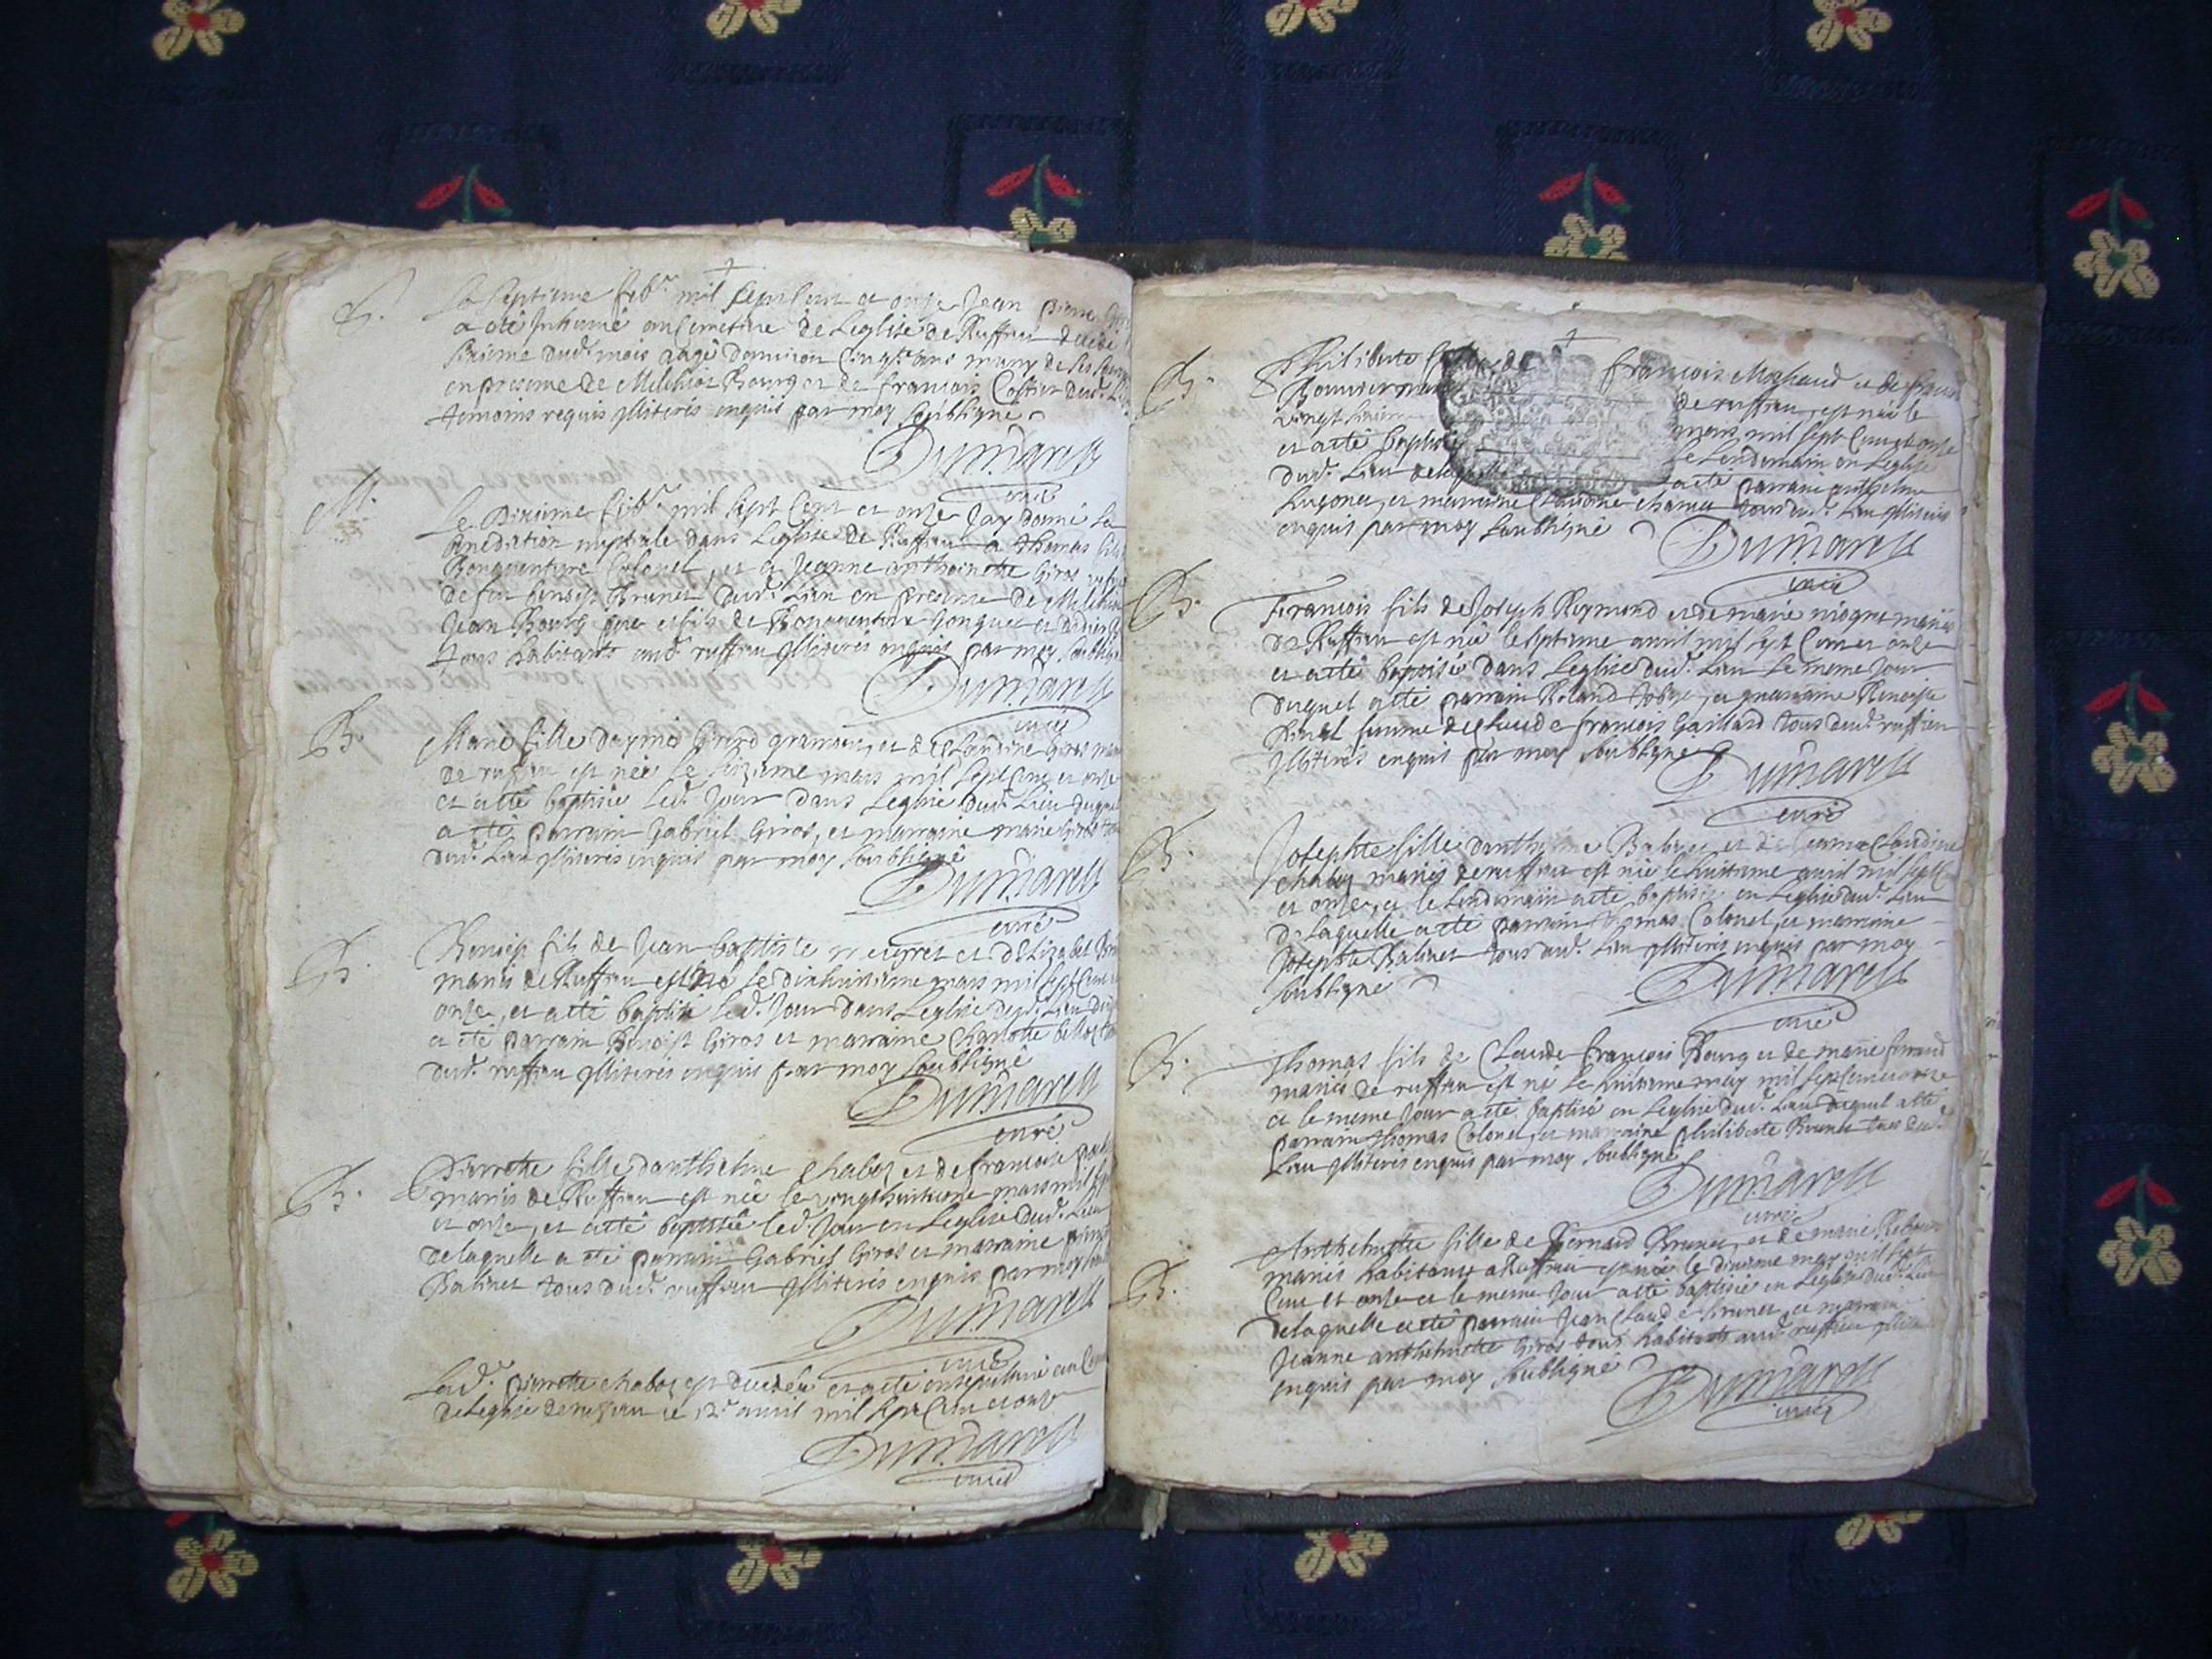 S.
Le septieme feb.r mil sept cent et onze Jean pierre
a eté Inhumé au Cemetiere de Leglise de Ruffieu decedé
sixieme dud. mois agé denviron Cinq.te ans muny de ses
en presence de Melchior Bourg et de francois Costier dud.
temoins requis illiterés enquis par moy soubsigné
Dumarest
curé
M.
Le dixieme feb.r mil sept Cent et onze Jay donné La
benediction nuptiale dans Leglise de Ruffieu a thomas fils
Bonaventure Colonel, et a Jeanne anthoinette Giros vefve
de feu benoist Brunet dud. Lieu en presence de Melchior
Jean Bourg pere et fils de Bonaventure Jonguet et
tous habitants aud. ruffieu illiterés enquis par moy soubsigné
Dumarest
curé
B.
Marie fille daymé Grand et de Claudine Giros
de ruffieu est née le seizieme mars mil sept Cent et onze
et a eté baptisée led. Jour dans Leglise dud. Lieu
a eté parrain Gabriel Giros, et marraine marie Giros
dud. Lieu illiterés enquis par moy soubsigné
Dumarest
curé
B.
Benoist fils de Jean baptiste et d'Elizabet
mariés de Ruffieu est né le dixhuitieme mars mil sept Cent
onze, et a eté baptisé led. Jour dans Leglise dud. Lieu
a eté parrain Benoist Giros et marraine Charlotte
dud. ruffieu illiterés enquis par moy soubsigné
Dumarest
curé
B.
Pierrette fille danthelme Chaboz et de francoise
mariés de Ruffieu est née le vingthuitieme mars mil
et onze, et a eté baptisée led. Jour en Leglise dud. Lieu
de laquelle a eté parrain Gabriel Giros et marraine
Balinet tous dud. ruffieu illiterés enquis par moy
Dumarest
curé
Lad. pierrette chaboz est decedée et a eté ensepulturé au
de Leglise de ruffieu le 12.e avril mil sept Cent et onze
Dumarest
curé
B.
Philiberte fille de francois Mochaud et de
Bouvier de ruffieu, est née le
vingt mars mil sept Cent et onze
et a eté baptisée le Lendemain en Leglise
dud. Lieu de laquelle a eté parrain anthelme
et marraine Claudine tous dud. Lieu illiterés
enquis par moy soubsigné
Dumarest
curé
B.
Francois fils de Joseph Reymond et de marie mariés
de Ruffieu est né le septieme avril mil sept Cent et onze
et a eté baptisé dans Leglise dud. Lieu le meme Jour
duquel a eté parrain Roland et marraine
femme de Claude francois Gaillard tous dud. ruffieu
illiterés enquis par moy soubsigné
Dumarest
curé
B.
Josephte fille danthelme et de Claudine
chaboz mariés de ruffieu est née le huitieme avril mil sept
et onze, et le Lendemain a eté baptisée en Leglise dud. Lieu
de Laquelle a eté parrain thomas Colonel, et marraine
Josephte Balinet tous dud. Lieu illiterés enquis par moy
soubsigné
Dumarest
curé
B.
Thomas fils de Claude francois Bourg et de marie
mariés de ruffieu est né le huitieme may mil sept Cent et onze
et le meme Jour a eté baptisé en Leglise dud. Lieu duquel a eté
parrain thomas Colonel, et marraine philiberte Brunet tous dud.
Lieu illiterés enquis par moy soubsigné
Dumarest
curé
B.
Anthelmette fille de Bernard Brunet, et de marie
mariés habitants a Ruffieu est née le dixieme may mil sept
Cent et onze et le meme Jour a eté baptisée en Leglise dud. Lieu
de laquelle a eté parrain Jean Claude brunet et marraine
Jeanne anthelmette Giros tous habitants aud. ruffieu
enquis par moy soubsigné
Dumarest
curé